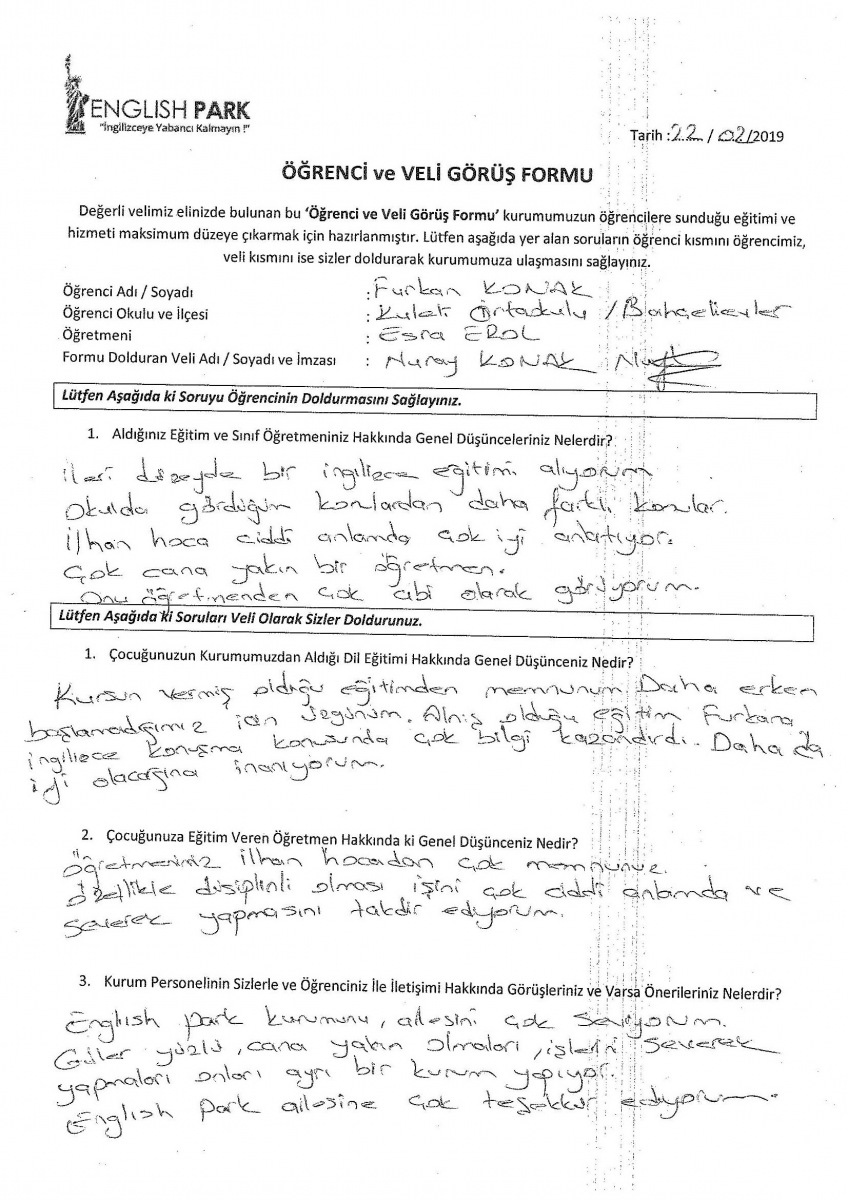 ENGLISH PARK
"İngilizceye Yabancı Kalmayın !"
Tarih :22 / 02/2019
ÖĞRENCİ ve VELİ GÖRÜŞ FORMU
Değerli velimiz elinizde bulunan bu 'Öğrenci ve Veli Görüş Formu' kurumumuzun öğrencilere sunduğu eğitimi ve
hizmeti maksimum düzeye çıkarmak için hazırlanmıştır. Lütfen aşağıda yer alan soruların öğrenci kısmını öğrencimiz,
veli kısmını ise sizler doldurarak kurumumuza ulaşmasını sağlayınız.
Öğrenci Adı / Soyadı : Furkan KONAK
Öğrenci Okulu ve İlçesi : Kuleli Ortaokulu / Bahçelievler
Öğretmeni : Esra EROL
Formu Dolduran Veli Adı / Soyadı ve İmzası : Nuray KONAK
Lütfen Aşağıda ki Soruyu Öğrencinin Doldurmasını Sağlayınız.
1. Aldığınız Eğitim ve Sınıf Öğretmeniniz Hakkında Genel Düşünceleriniz Nelerdir?
ileri düzeyde bir ingilizce eğitimi alıyorum
Okulda gördüğüm konulardan daha farklı konular.
İlhan hoca ciddi anlamda çok iyi anlatıyor.
Çok cana yakın bir öğretmen.
Onu öğretmenden çok abi olarak görüyorum.
Lütfen Aşağıda ki Soruları Veli Olarak Sizler Doldurunuz.
1. Çocuğunuzun Kurumumuzdan Aldığı Dil Eğitimi Hakkında Genel Düşünceniz Nedir?
Kursun vermiş olduğu eğitimden memnunum Daha erken
başlamadığımız için üzgünüm. Almış olduğu eğitim Furkana
ingilizce konuşma konusunda çok bilgi kazandırdı. Daha da
iyi olacağına inanıyorum.
2. Çocuğunuza Eğitim Veren Öğretmen Hakkında ki Genel Düşünceniz Nedir?
Öğretmeniniz İlhan hocadan çok memnunuz.
özellikle disiplinli olması işini çok ciddi anlamda ve
severek yapmasını takdir ediyorum.
3. Kurum Personelinin Sizlerle ve Öğrenciniz İle İletişimi Hakkında Görüşleriniz ve Varsa Önerileriniz Nelerdir?
English park kurumunu, ailesini çok seviyorum.
Güler yüzlü, cana yakın olmaları, işlerini severek
yapmaları onları ayrı bir kurum yapıyor.
English Park ailesine çok teşekkür ediyorum.